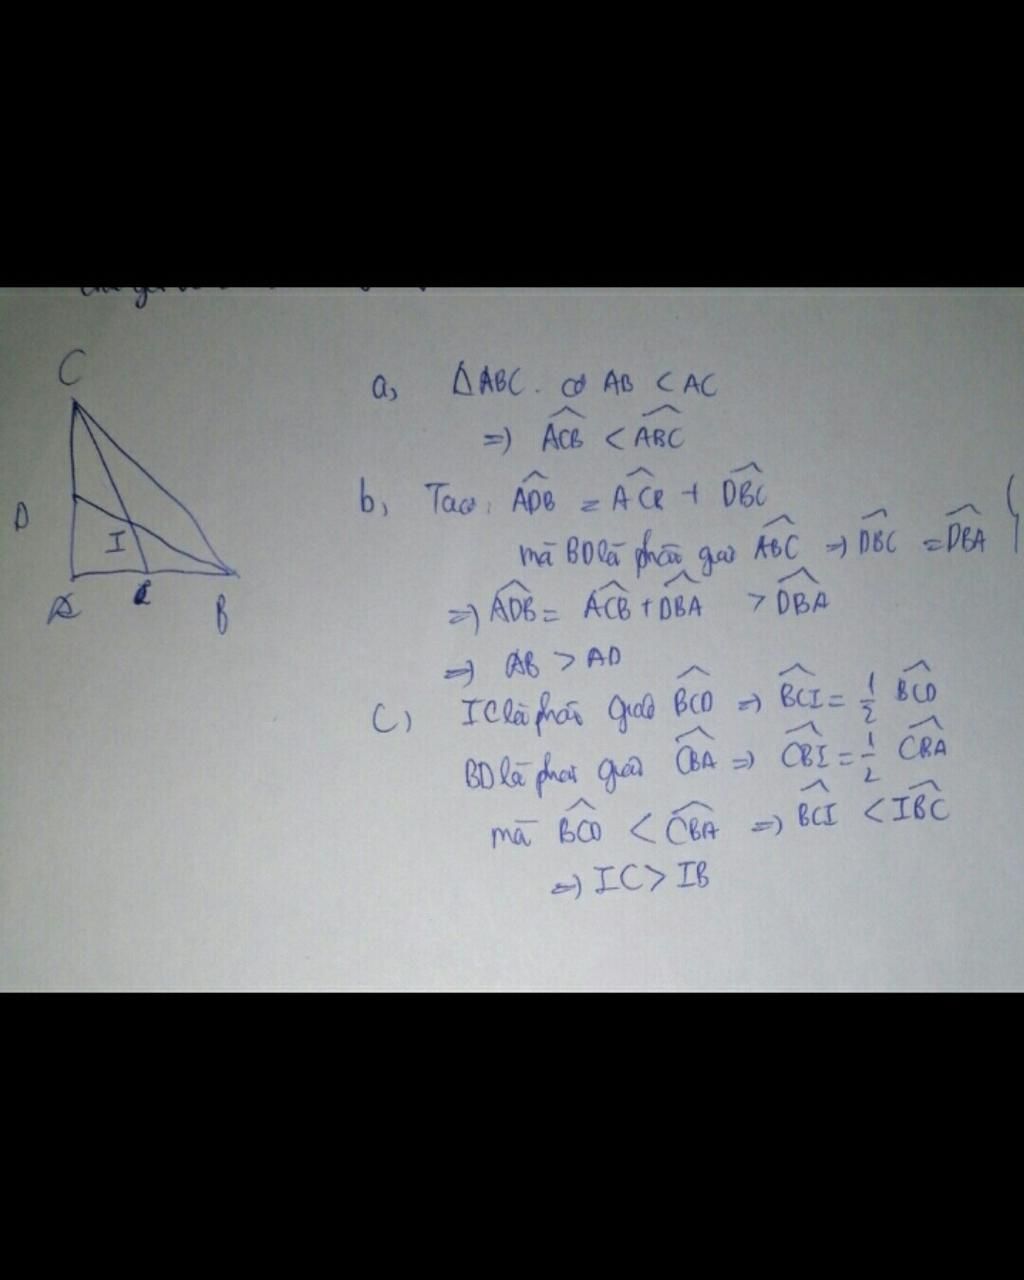 C
D
I
A
B
a, ΔABC. có AB < AC
=) \widehat{ACB} < \widehat{ABC}
b, Ta có, \widehat{ADB} = \widehat{ACB} + \widehat{DBC}
mà BD là phân giác \widehat{ABC} =) \widehat{DBC} = \widehat{DBA}
=) \widehat{ADB} = \widehat{ACB} + \widehat{DBA} > \widehat{DBA}
=) AB > AD
C) IC là phân giác \widehat{BCD} =) \widehat{BCI} = 1/2 \widehat{BCD}
BD là phân giác \widehat{CBA} =) \widehat{CBI} = 1/2 \widehat{CBA}
mà \widehat{BCD} < \widehat{CBA} =) \widehat{BCI} < \widehat{IBC}
=) IC > IB